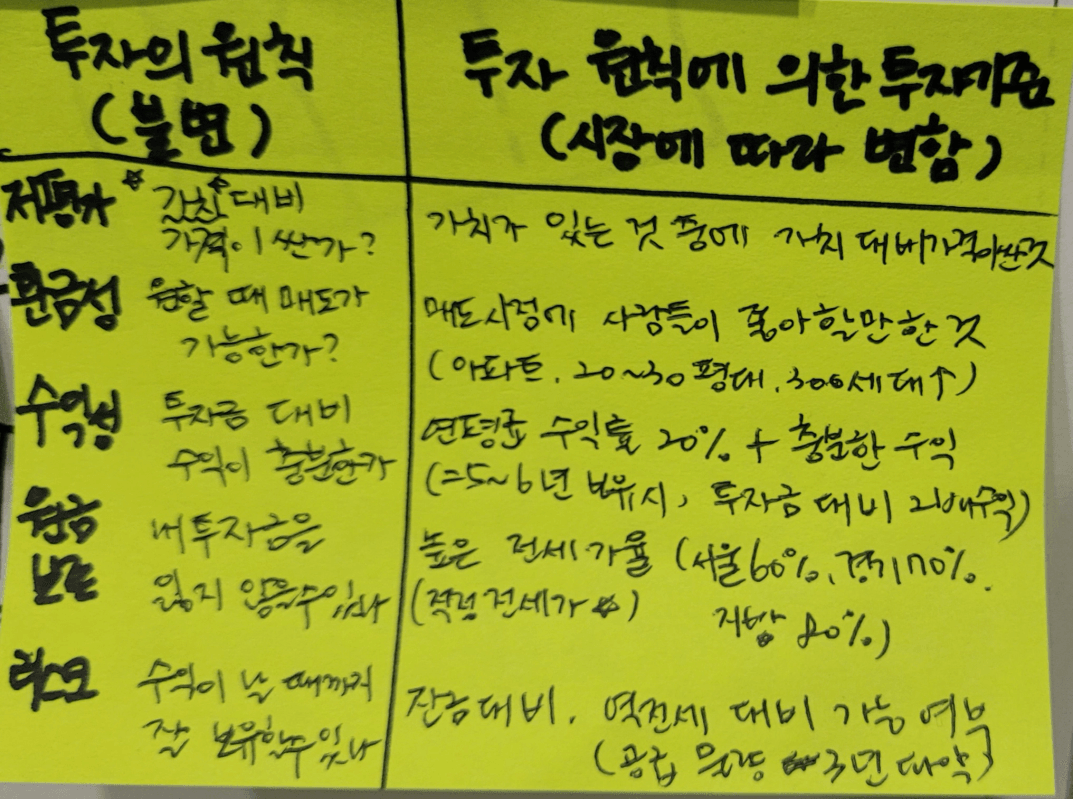 투자의 원칙
(불변)
투자 원칙에 의한 투자기준
(시장에 따라 변함)
저평가 ☆ 가치 대비
가격이 싼가?
가치가 있는 것 중에 가치 대비 가격이 싼 것
환금성 원할 때 매도가
가능한가?
매도시점에 사람들이 좋아할만한 것
(아파트, 20~30평대, 300세대↑)
수익성 투자금 대비
수익이 충분한가
연평균 수익률 20% + 충분한 수익
(=5~6년 보유시, 투자금 대비 2배수익)
원금
보존
내 투자금을
잃지 않을수있나
높은 전세가율 (서울60%, 경기70%,
지방 80%)
(적정 전세가 ☆)
리스크 수익이 날 때까지
잘 보유할수있나
잔금대비, 역전세 대비 가능 여부
(공급 물량 3년 파악)